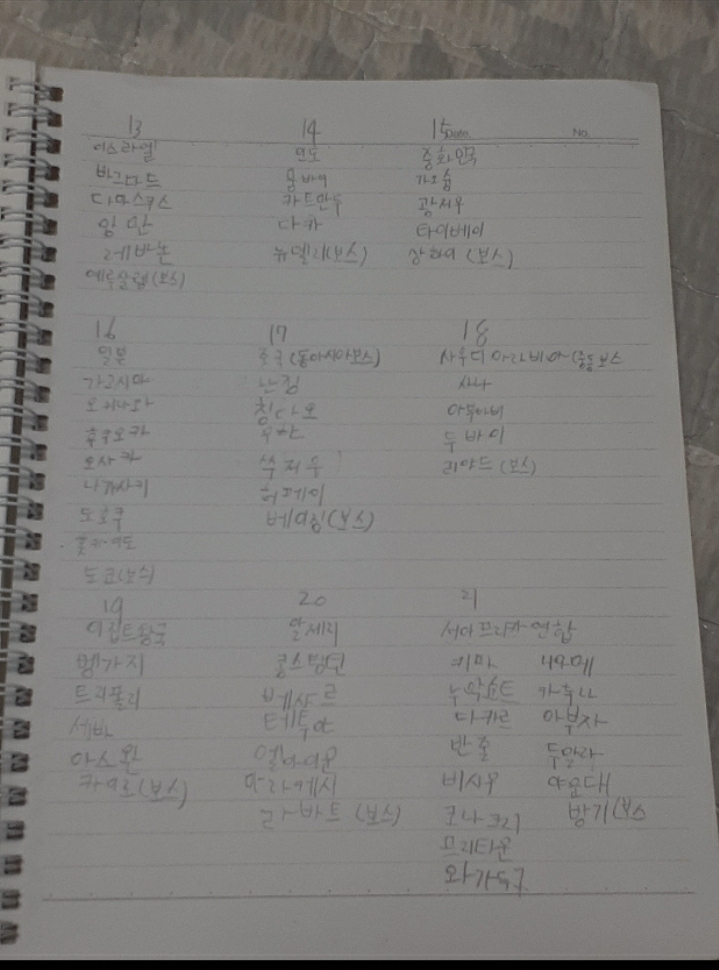 13
이스라엘
바그다드
다마스커스
암만
레바논
예루살렘(보스)
14
인도
뭄바이
카트만두
다카
뉴델리(보스)
15
Date.
No.
중화민국
가오슝
광저우
타이베이
상하이 (보스)
16
일본
가고시마
오키나와
후쿠오카
오사카
나가사키
도호쿠
홋카이도
도쿄(보스)
17
중국(동아시아보스)
난징
칭다오
우한
쑤저우
허페이
베이징(보스)
18
사우디아라비아(중동보스
사나
아부다비
두바이
리야드 (보스)
19
이집트왕국
벵가지
트리폴리
세바
아스완
카이로(보스)
20
알제리
콩스탕틴
베샤르
테투안
엘아이운
마라케시
라바트 (보스)
21
서아프리카 연합
키파
누악쇼트
다카르
반줄
비사우
코나크리
프리타운
와가두구
니아메
카두나
아부자
두알라
야운데
방기(보스